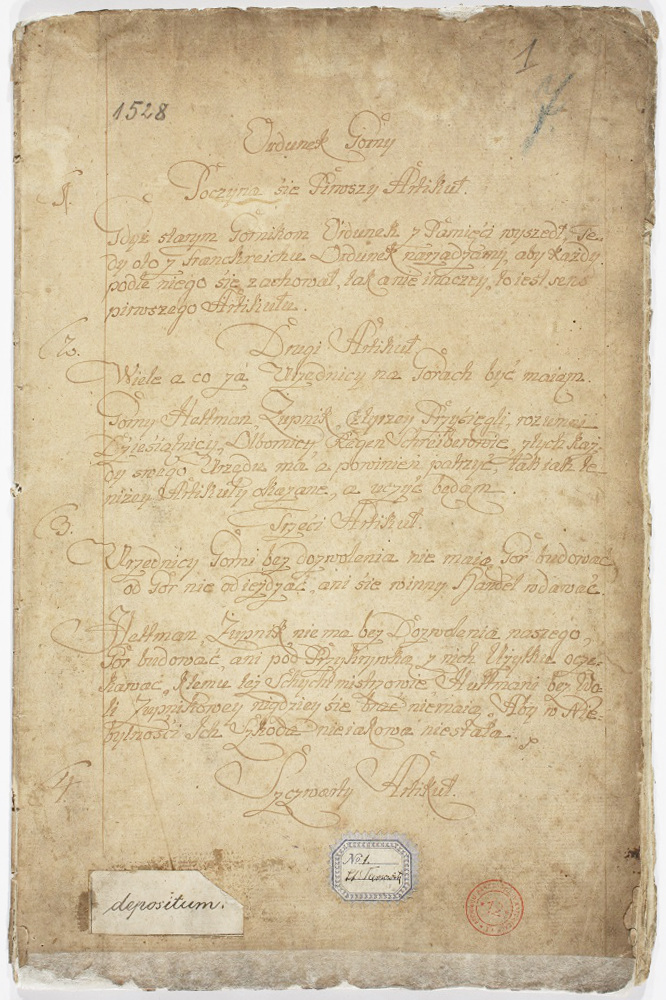 1
7
1528
Ordunek Gorny
1. Poczyna się Pirwszy Artikuł.
Gdyż starym Gornikom Ordunek z Pamięci wyszedł, Te-
dy oto z Franckreichu Ordunek narządzamy, aby każdy
podle niego się zachował, tak a nie inaczey, to iest sens
pirwszego Artikułu.
2. Drugi Artikuł.
Wiele a co za Urzędnicy na Gorach być maiąm.
Gorny Hettman Zupnik, cztyrzey Przysięgli, rozumei
Dziesiątnicy, Schreiberowie, z tych kaz-
dy swego Urzędu ma, a powinien patrzyć, tak iak te
niżey Artikuły okazane, a uczyć będąm.
3. Trzeci Artikuł.
Urzędnicy Gorni bez dozwolenia nie maią Gor budować
od Gor nie odiezdzać, ani się w inny Handel wdawać.
Hettman, Zupnik nie ma bez Dozwolenia naszego,
Gor budować, ani pod Przykrywką z nich Użytku ocze-
kawać, k temu tej Schichtmistrzowie Huttmani bez Wo-
li Zupnikowey nigdziey się brać nie maią. Aby w Nie-
bytności Ich Szkoda nieiakowa niestała.
4. Szczwarty Artikuł.
depositum.
Nr 1.